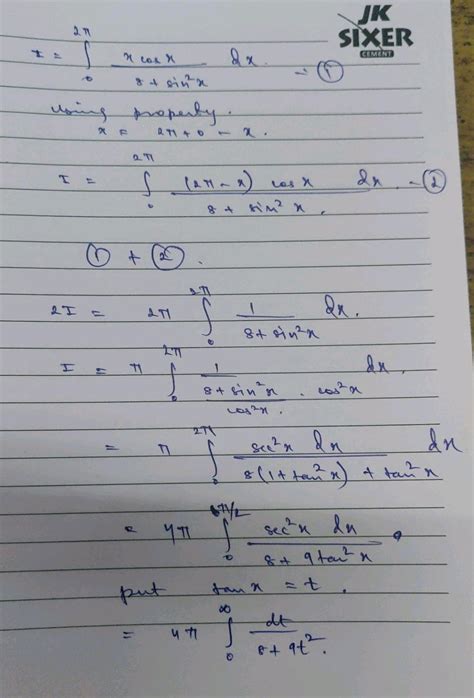 JK
SIXER
CEMENT
I = ∫₀^{2π} x cos x / (8 + sin²x) dx. – ①
Using property.
x = 2π + 0 – x.
I = ∫₀^{2π} (2π – x) cos x / (8 + sin²x) dx. – ②
① + ②.
2I = 2π ∫₀^{2π} 1 / (8 + sin²x) dx.
I = π ∫₀^{2π} 1 / ((8 + sin²x) / cos²x · cos²x) dx.
= π ∫₀^{2π} sec²x dx / (8(1 + tan²x) + tan²x) dx
= 4π ∫₀^{π/2} sec²x dx / (8 + 9 tan²x)
put tan x = t.
= 4π ∫₀^{∞} dt / (8 + 9t²).